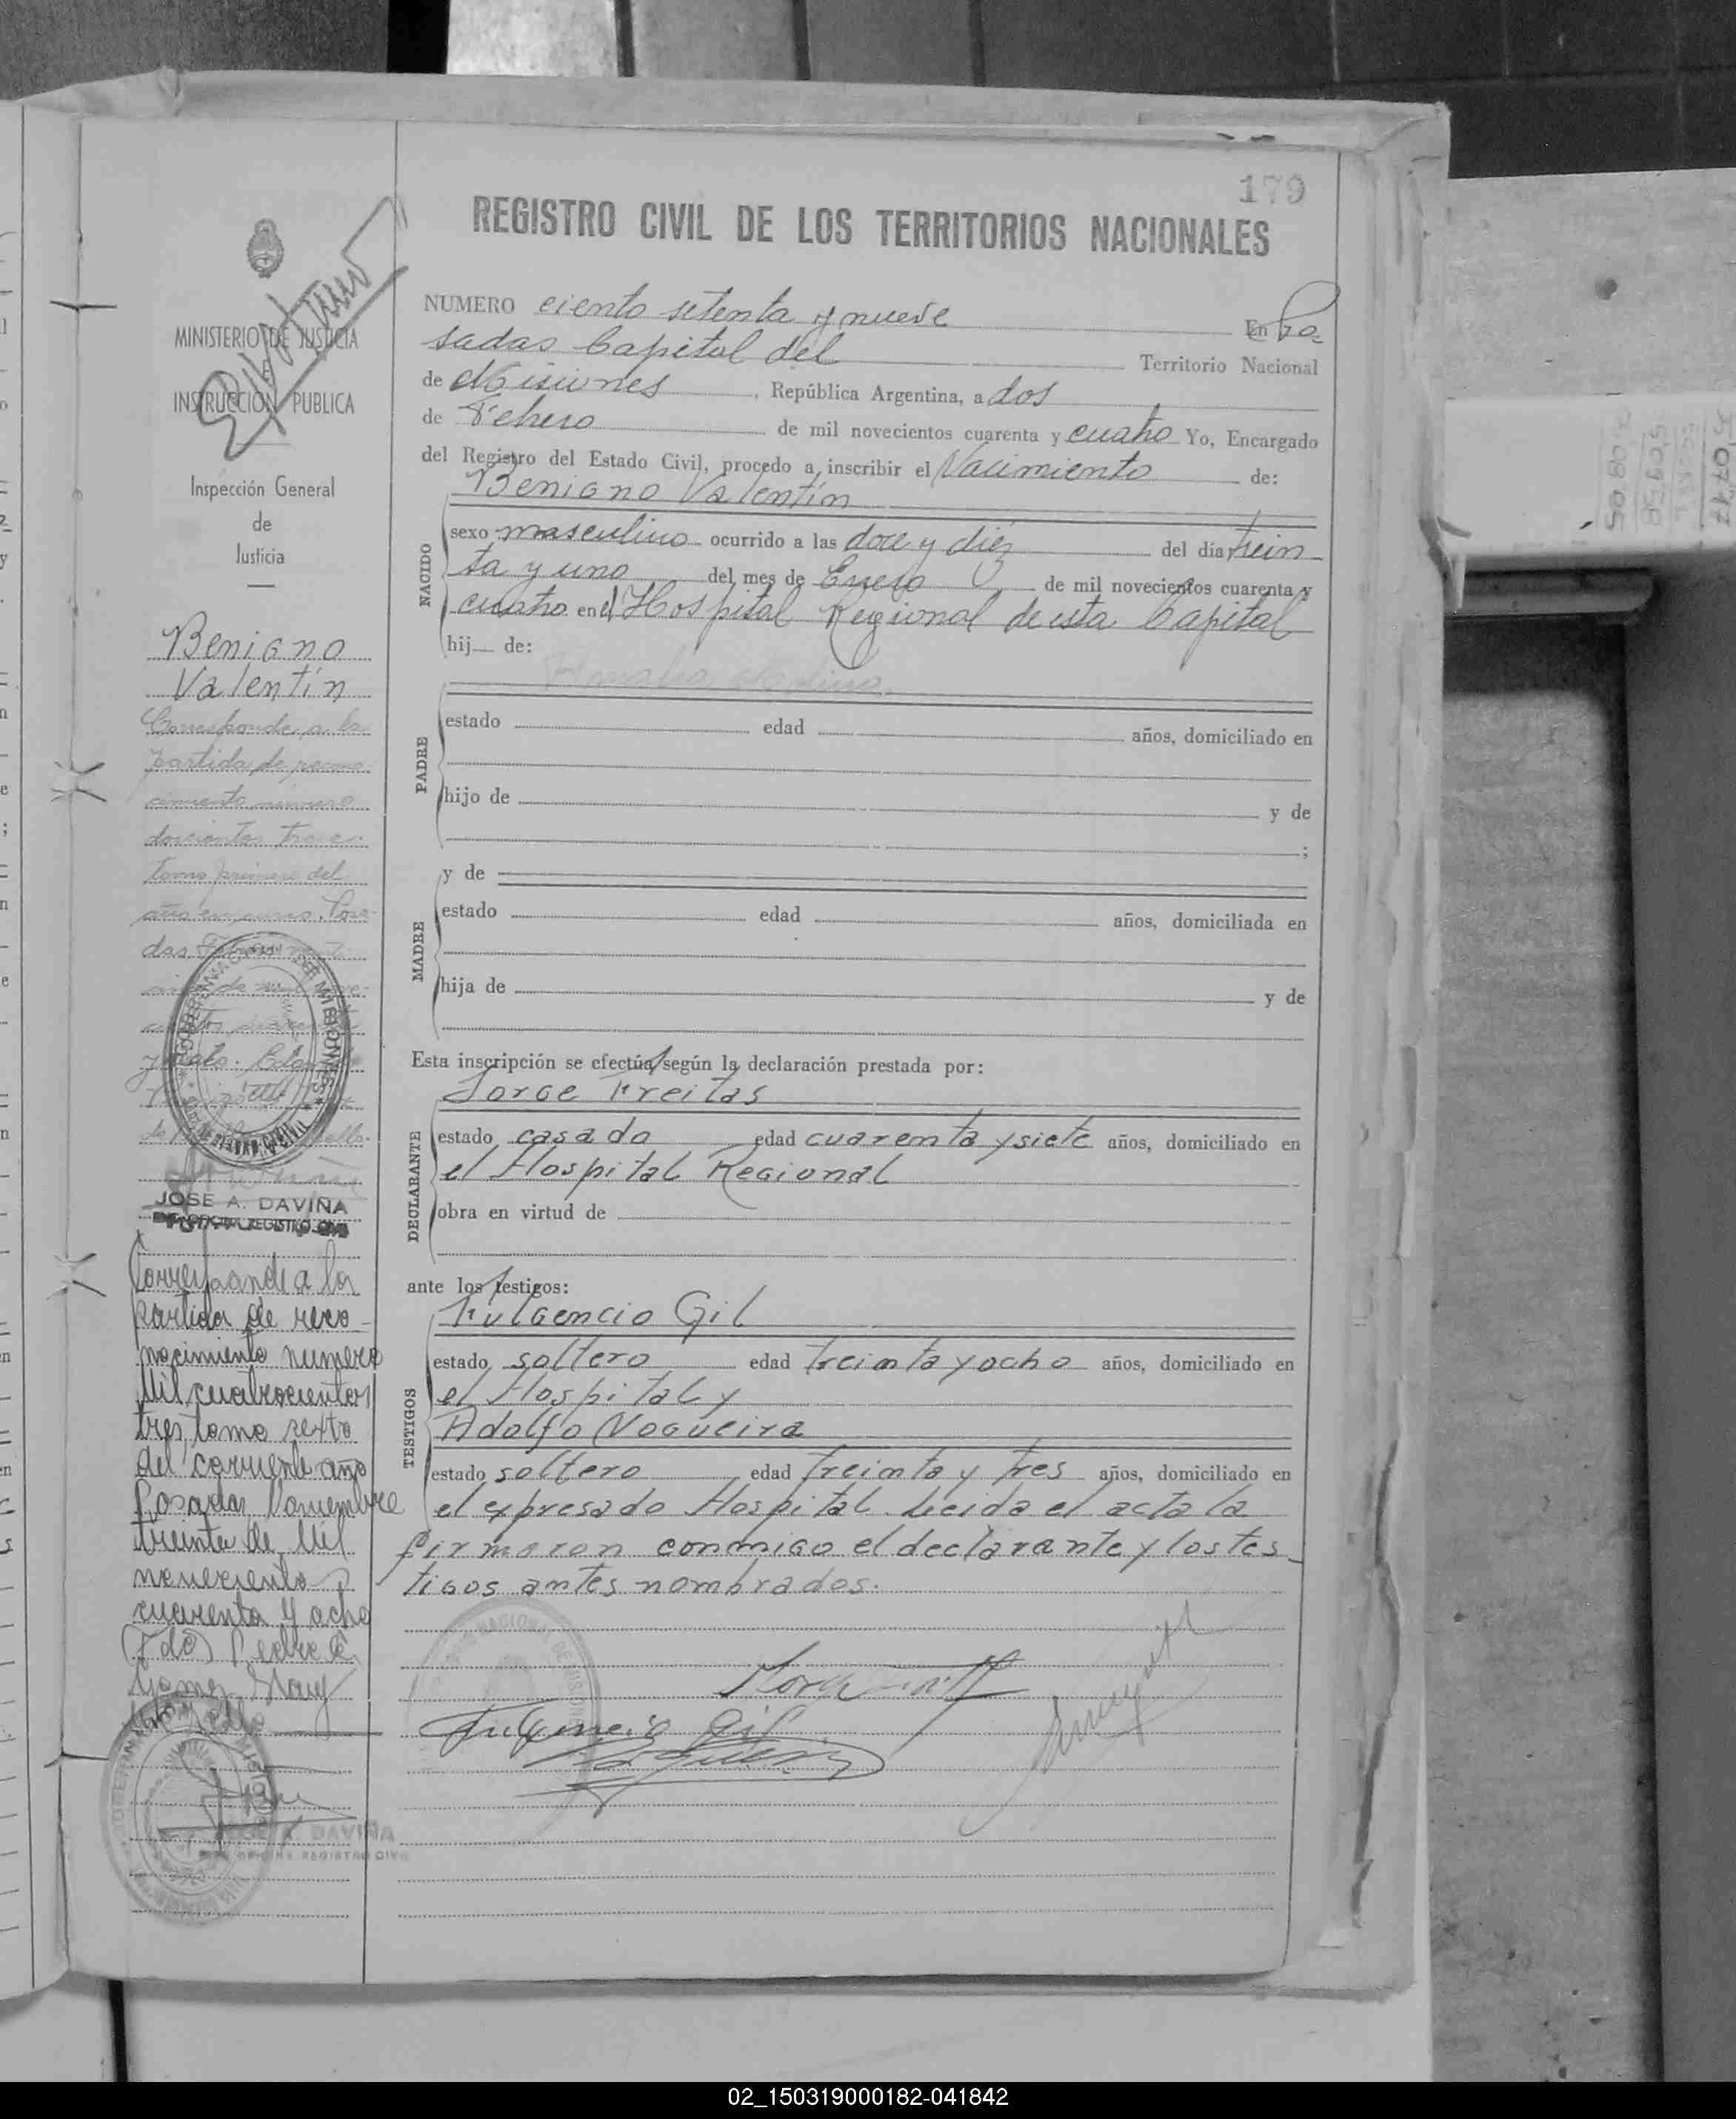 179
REGISTRO CIVIL DE LOS TERRITORIOS NACIONALES
MINISTERIO DE JUSTICIA
E
INSTRUCCION PUBLICA
Inspección General
de
Justicia
Benigno
Valentín
Corresponde a la
partida de recono-
cimiento número
doscientos trece
tomo primero del
año en curso. Posa-
das Febrero
JOSE A. DAVIÑA
Corresponde a la
partida de reco-
nocimiento numero
Mil cuatrocientos
tres, tomo sexto
del corriente año
Posadas Noviembre
treinta de Mil
novecientos
cuarenta y ocho
(Fdo) Pedro
NUMERO ciento setenta y nueve En Po-
sadas Capital del Territorio Nacional
de Misiones, República Argentina, a dos
de Febrero de mil novecientos cuarenta y cuatro Yo, Encargado
del Registro del Estado Civil, procedo a inscribir el Nacimiento de:
Benigno Valentín
NACIDO
sexo masculino ocurrido a las doce y diéz del día trein-
ta y uno del mes de Enero de mil novecientos cuarenta y
cuatro en el Hospital Regional de esta Capital
hij de:
PADRE
estado edad años, domiciliado en
hijo de y de
;
y de
MADRE
estado edad años, domiciliada en
hija de y de
Esta inscripción se efectúa según la declaración prestada por:
Jorge Freitas
DECLARANTE
estado casado edad cuarenta y siete años, domiciliado en
el Hospital Regional
obra en virtud de
ante los testigos:
Fulgencio Gil
TESTIGOS
estado soltero edad treinta y ocho años, domiciliado en
el Hospital y
Adolfo Nogueira
estado soltero edad treinta y tres años, domiciliado en
el expresado Hospital. Leida el acta la
firmaron conmigo el declarante y los tes-
tigos antes nombrados.
Fulgencio Gil
DAVIÑA
REGISTRO CIVIL
50747
50958
50805
02_150319000182-041842